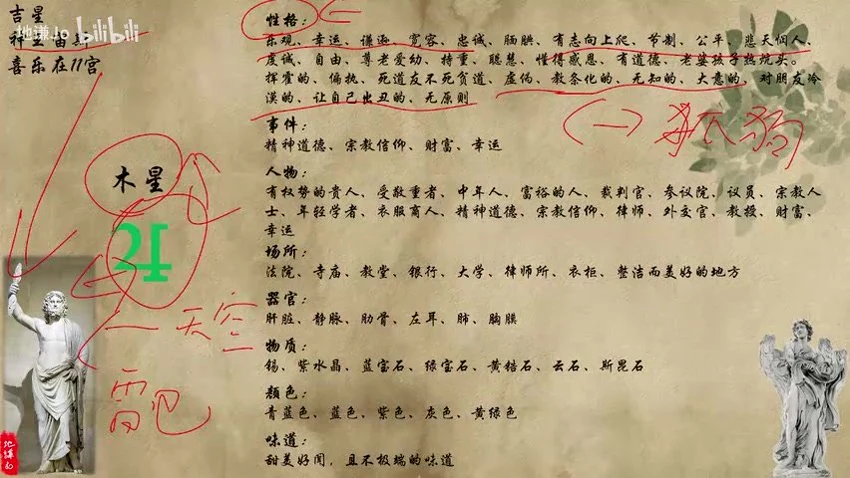 吉星
地谦Jo bilibili
喜乐在11宫
木星
性格:
乐观、幸运、谦逊、宽容、忠诚、腼腆、有志向上爬、节制、公平、悲天悯人、
虔诚、自由、尊老爱幼、持重、聪慧、懂得感恩、有道德、老婆孩子热炕头。
挥霍的、偏执、死道友不死贫道、虚伪、教条化的、无知的、大意的、对朋友冷
漠的、让自己出丑的、无原则
(一)
事件:
精神道德、宗教信仰、财富、幸运
人物:
有权势的贵人、受敬重者、中年人、富裕的人、裁判官、参议院、议员、宗教人
士、年轻学者、衣服商人、精神道德、宗教信仰、律师、外交官、教授、财富、
幸运
场所:
法院、寺庙、教堂、银行、大学、律师所、衣柜、整洁而美好的地方
器官:
肝脏、静脉、肋骨、左耳、肺、胸膜
物质:
锡、紫水晶、蓝宝石、绿宝石、黄锆石、云石、斯昆石
颜色:
青蓝色、蓝色、紫色、灰色、黄绿色
味道:
甜美好闻，且不极端的味道
天空